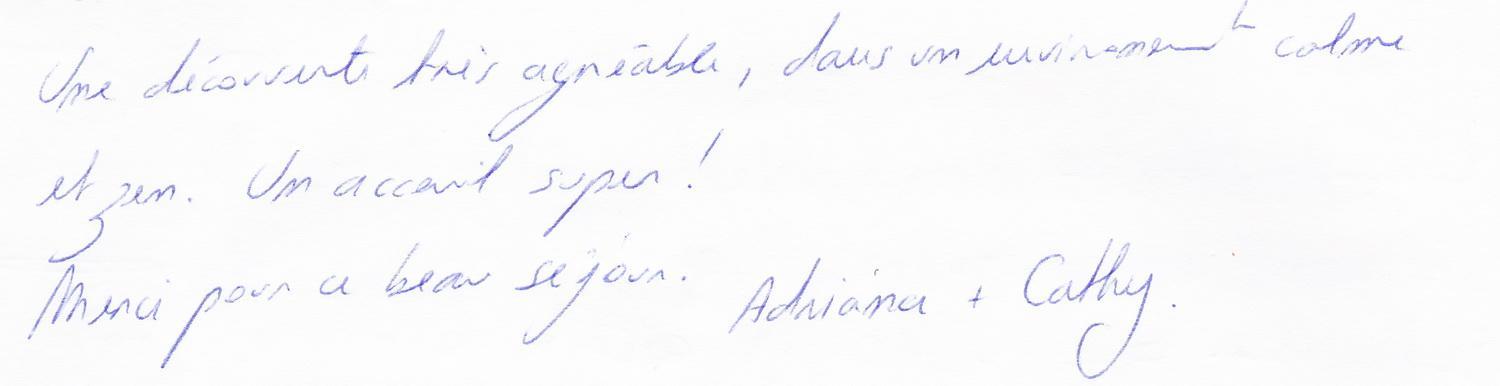 Une découverte très agréable, dans un environement calme
et zen. Un acceuil super !
Merci pour ce beau séjour. Adriana + Cathy.